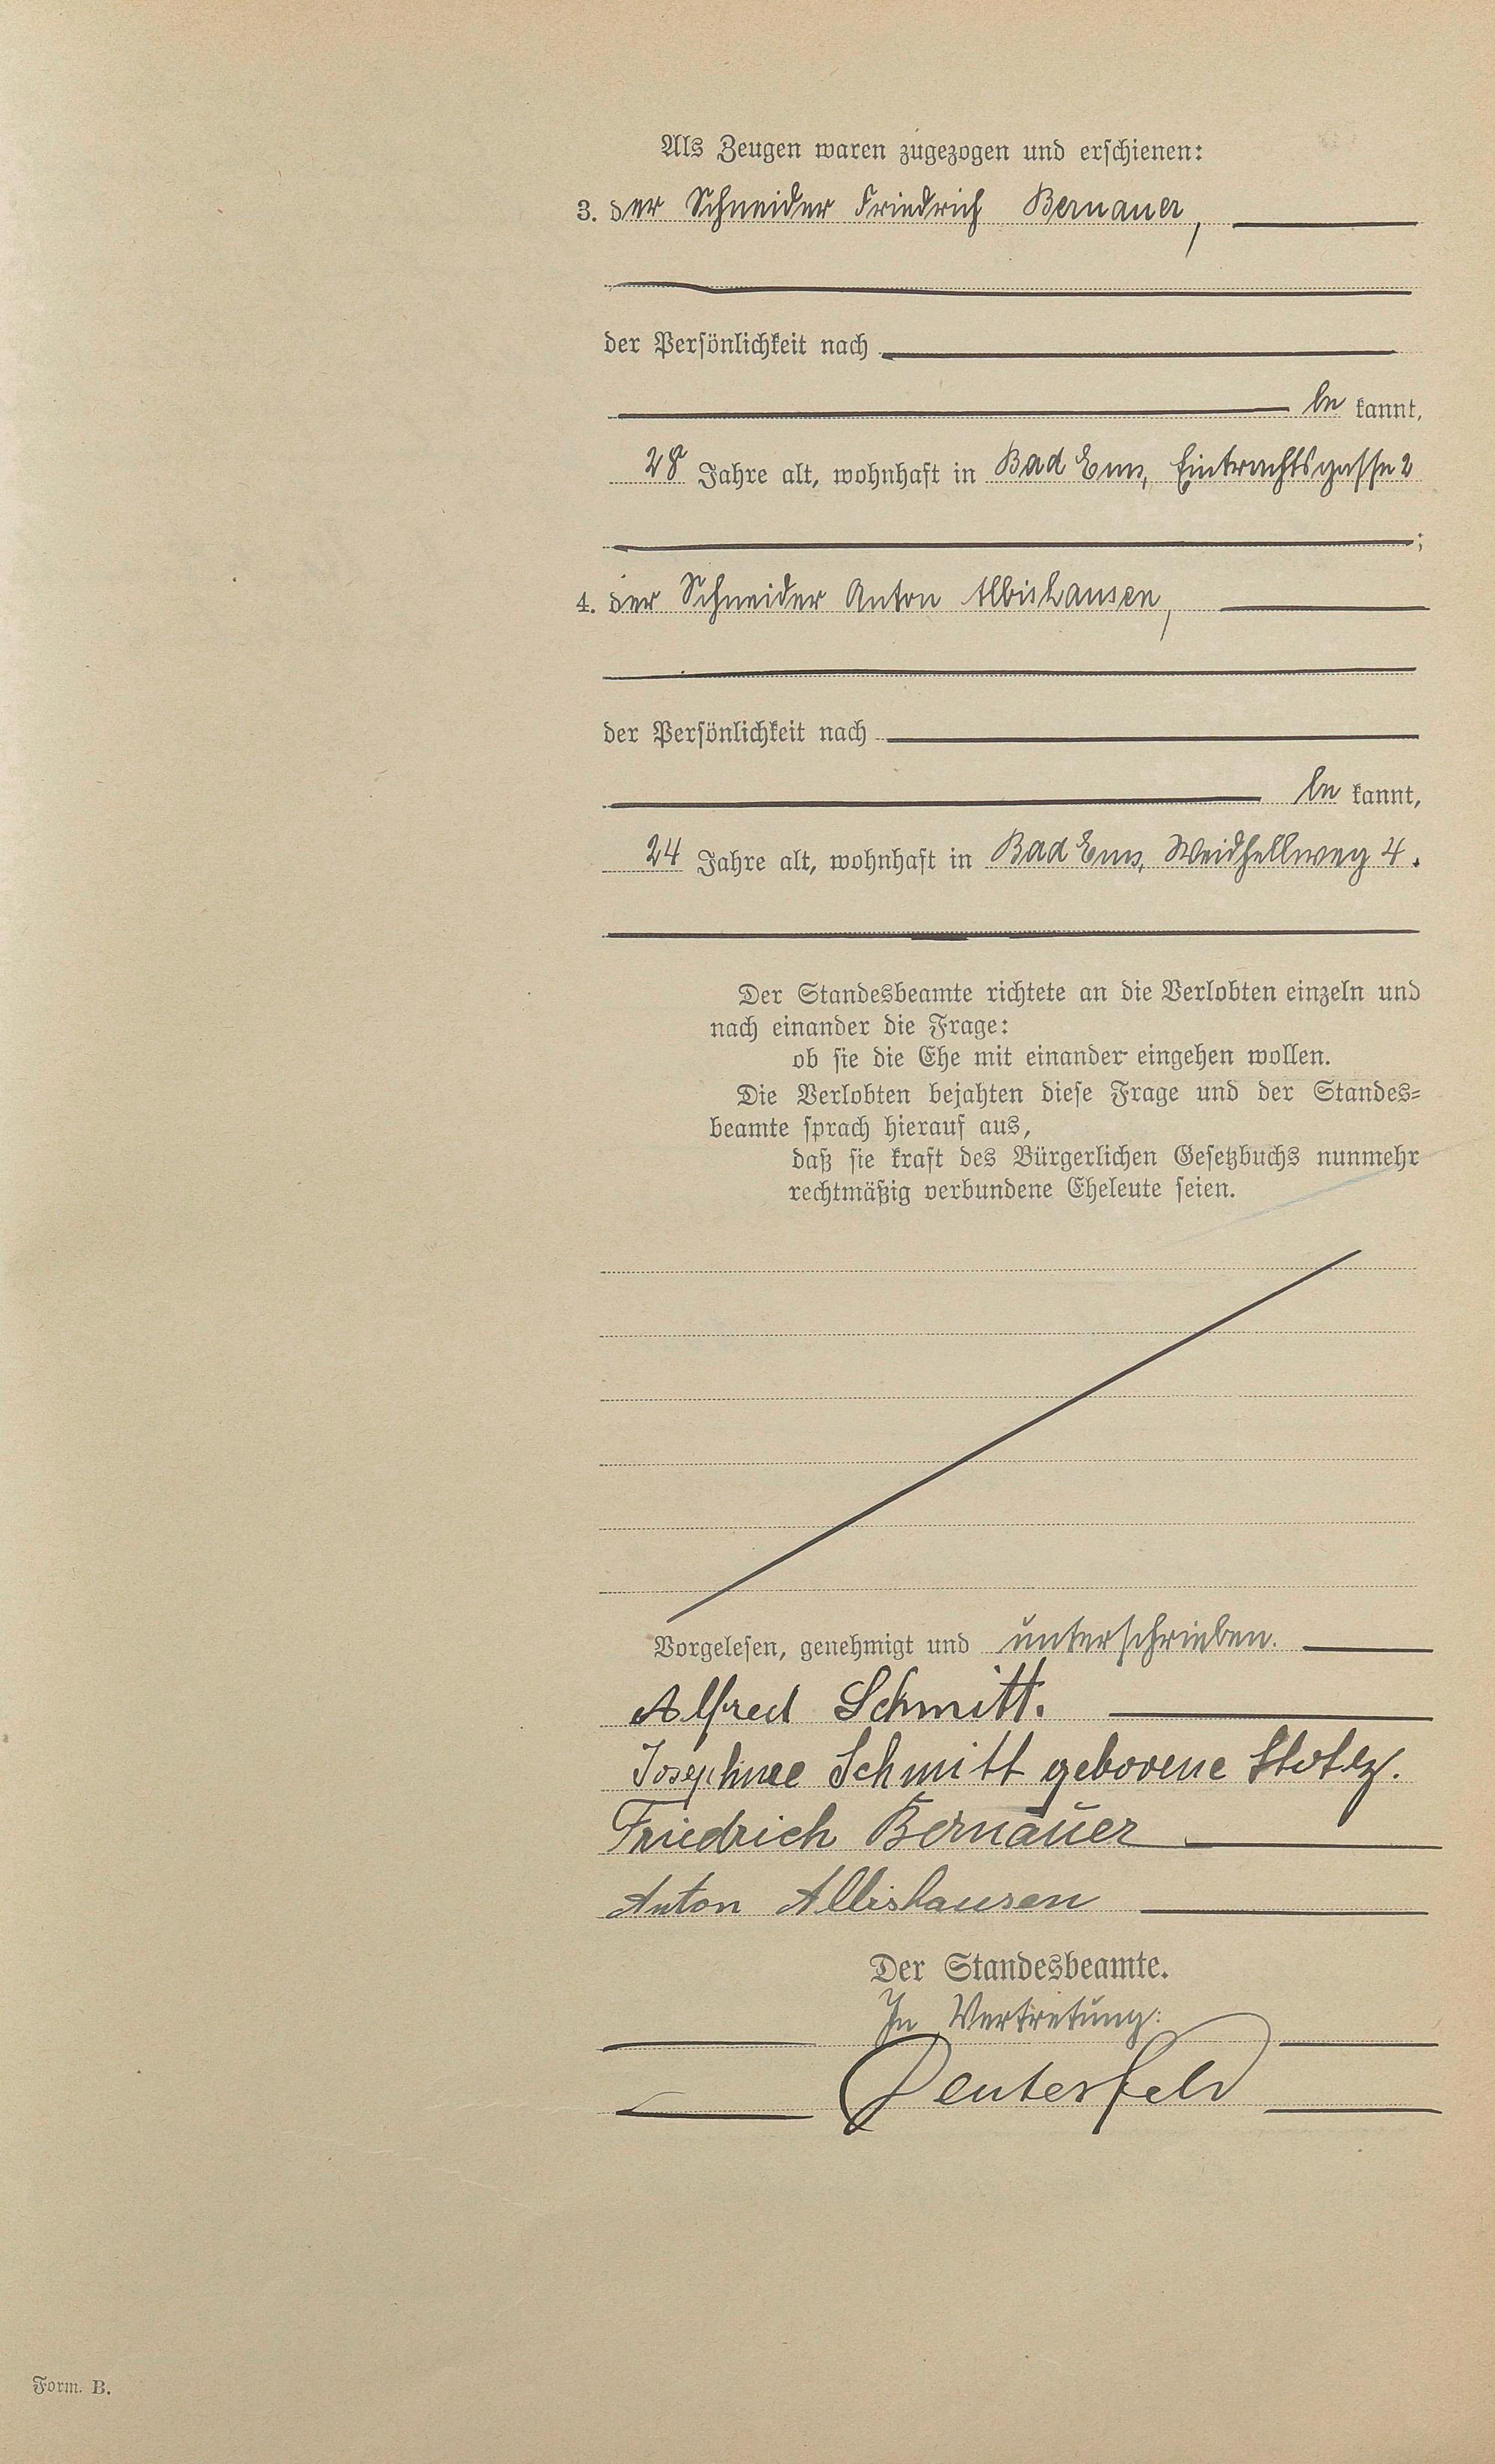 Als Zeugen waren zugezogen und erschienen:
3. der Schneider Friedrich Bernauer,
der Persönlichkeit nach
be kannt,
28 Jahre alt, wohnhaft in Bad Ems, Eintrachtsgasse 2
;
4. der Schneider Anton Albishausen,
der Persönlichkeit nach
be kannt,
24 Jahre alt, wohnhaft in Bad Ems, Weidhellweg 4.
Der Standesbeamte richtete an die Verlobten einzeln und
nach einander die Frage:
ob sie die Ehe mit einander eingehen wollen.
Die Verlobten bejahten diese Frage und der Standes=
beamte sprach hierauf aus,
daß sie kraft des Bürgerlichen Gesetzbuchs nunmehr
rechtmäßig verbundene Eheleute seien.
Vorgelesen, genehmigt und unterschrieben.
Alfred Schmitt.
Josephine Schmitt geborene Stotz.
Friedrich Bernauer
Anton Albishausen
Der Standesbeamte.
In Vertretung:
Deutesfeld
Form. B.